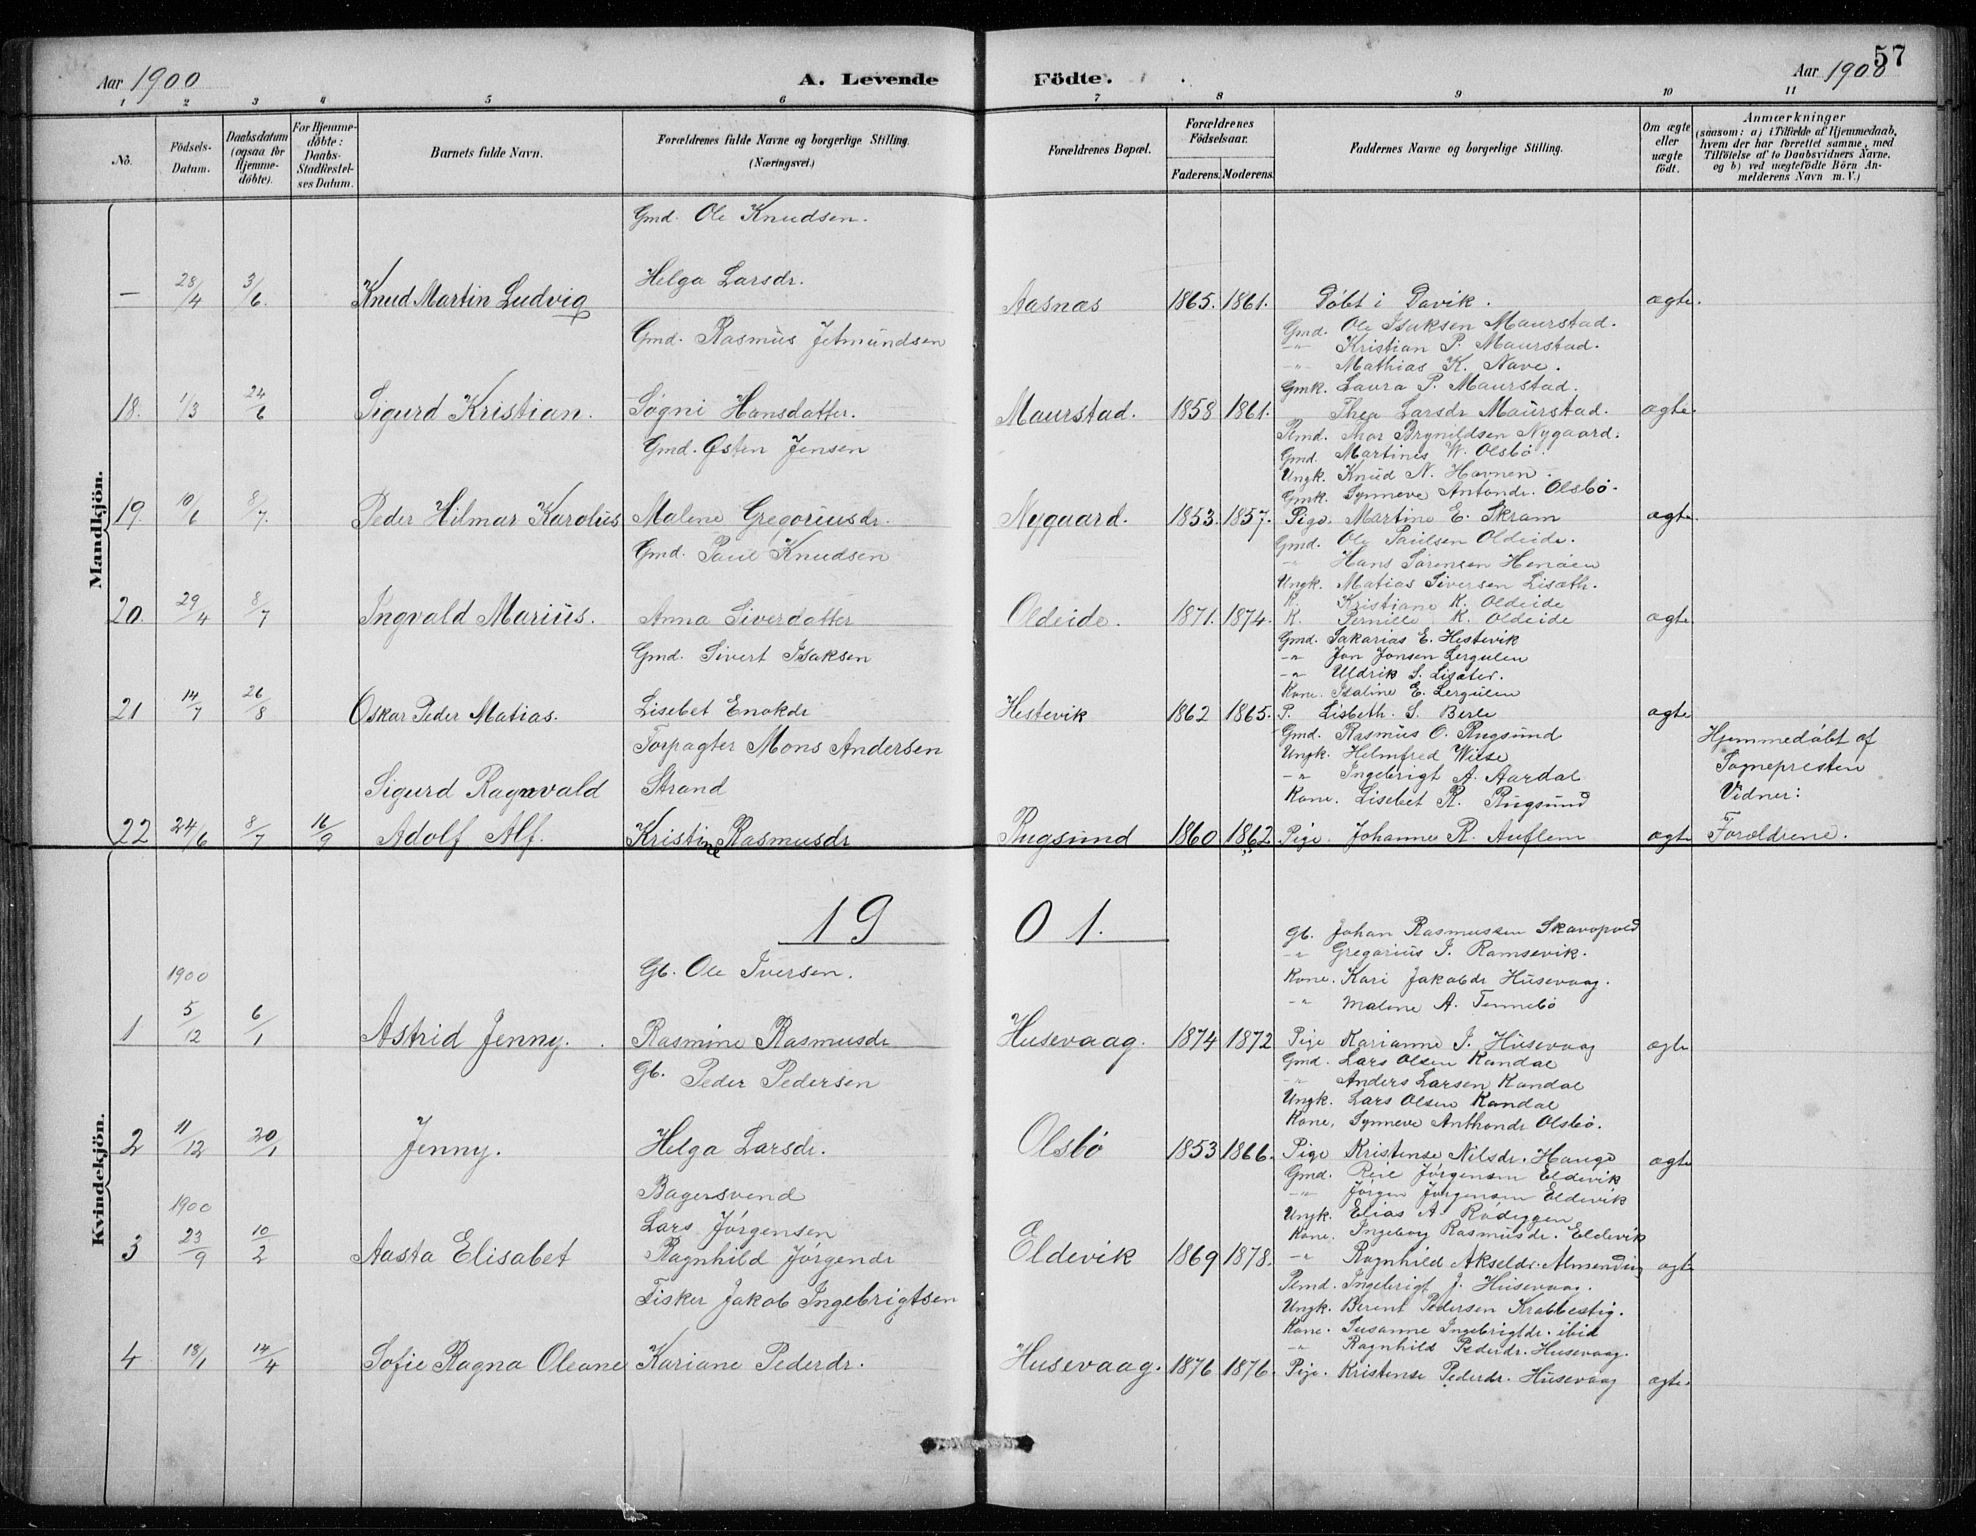 57
Aar 1900
A. Levende
Födte.
Aar 1900
1 2 3 4 5 6 7 8 9 10 11
No.
Födsels-Datum.
Daabsdatum (ogsaa for Hjemme-døbte).
For Hjemme-døbte: Daabs-Stadfæstel-ses Datum.
Barnets fulde Navn.
Forældrenes fulde Navne og borgerlige Stilling.
(Næringsvei.)
Forældrenes Bopæl.
Forældrenes Födselsaar.
Faderens. Moderens.
Faddernes Navne og borgerlige Stilling.
Om ægte eller uægte födt.
Anmærkninger
(saasom: a) i Tilfælde af Hjemmedaab, hvem der har forrettet samme, med Tilföielse af to Daabsvidners Navne, og b) ved uægtefödte Börn An-melderens Navn m. V.)
Mandkjön.
Gmd. Ole Knudsen.
— 28/4 3/6. Knud Martin Ludvig
Helga Larsdr.
Aasnæs 1865. 1861. Døbt i Davik. ægte.
Gmd. Rasmus Jetmundsen
18. 1/3 24/6 Sigurd Kristian. Søgni Hansdatter.
Maurstad. 1858 1861.
Gmd. Ole Isaksen Maurstad.
-"- Kristian P. Maurstad.
-"- Mathias K. Nave.
Gmk. Laura P. Maurstad.
Thea Larsdr Maurstad. ægte.
Gmd. Østen Jensen
19. 10/6 8/7. Peder Hilmar Karolus Malene Gregoriusdr.
Nygaard. 1853. 1857.
Fmd. Thor Brynildsen Nygaard.
Gmd. Martines W. Olsbö.
Ungk. Knud N. Havnen.
Gmk. Synneve Antondr. Olsbö.
Pige. Martine E. Skram ægte.
Gmd. Paul Knudsen
20. 29/4 8/7 Ingvald Marius. Anna Siverdatter
Oldeide. 1871. 1874.
Gmd. Ole Paulsen Oldeide.
" Hans Sørensen Henøen
Ungk. Matias Siversen Lisæth.
K. Kristiane K. Oldeide
K. Pernille K. Oldeide ægte.
Gmd. Sivert Isaksen
21 14/7 26/8 Oskar Peder Matias. Lisebet Enokdr
Hestevik 1862 1865.
Gmd. Sakarias E. Hestevik
-"- Jon Jonsen Lergulen
-"- Uldrik S. Lisæter.
Kone. Isaline E. Lergulen
P. Lisbeth. S. Berle ægte
Forpagter Mons Andersen
Strand
22 24/6 8/7 16/9 Sigurd Ragnvald
Adolf Alf. Kristine Rasmusdr
Rugsund 1860 1862
Gmd. Rasmus O. Rugsund
Ungk. Helmfred Wiese
-"- Ingebrigt A. Aardal
Kone. Lisebet R. Rugsund
Pige. Johanne R. Auflem ægte
Hjemmedøbt af
Sognepresten
Vidner:
Forældrene.
1901.
Kvindekjön.
1900
Gb. Ole Iversen.
1 5/12 6/1 Astrid Jenny. Rasmine Rasmusdr
Husevaag. 1874 1872
Gb. Johan Rasmussen
-"- Gregorius J. Ramsevik.
Kone. Kari Jakobdr Husevaag.
-"- Malene A. Tennebö
Pige Karianne J. Husevaag ægte
Gb. Peder Pedersen
2 11/12 20/1 Jenny. Helga Larsdr.
Olsbö 1853 1866.
Gmd. Lars Olsen Kandal
-"- Anders Larsen Kandal
Ungk. Lars Olsen Kandal
Kone, Synneve Anthondr Olsbö.
Pige Kristense Nilsdr. Hauge ægte
1900
Bagersvend
Lars Jörgensen
3 23/9 10/2 Aasta Elisabet Ragnhild Jörgendr
Eldevik 1869 1878.
Gmd. Jörgensen Eldevik
-"- Jörgen Jörgensen Eldevik
Ungk. Elias A. Rödeggen
Kone. Ingeborg Rasmusdr. Eldevik
-"- Ragnhild Akseldr. Almending ægte
Fisker Jakob Ingebrigtsen
4 18/1 14/4 Sofie Ragna Oleane Kariane Pederdr.
Husevaag. 1876 1876.
Fmd. Ingebrigt J. Husevaag.
Ungk. Berent Pedersen Krabbestig.
Kone. Susanne Ingebrigtdr. ibid
-"- Ragnhild Pederdr. Husevaag.
Pige. Kristense Pederdr. Husevaag ægte.